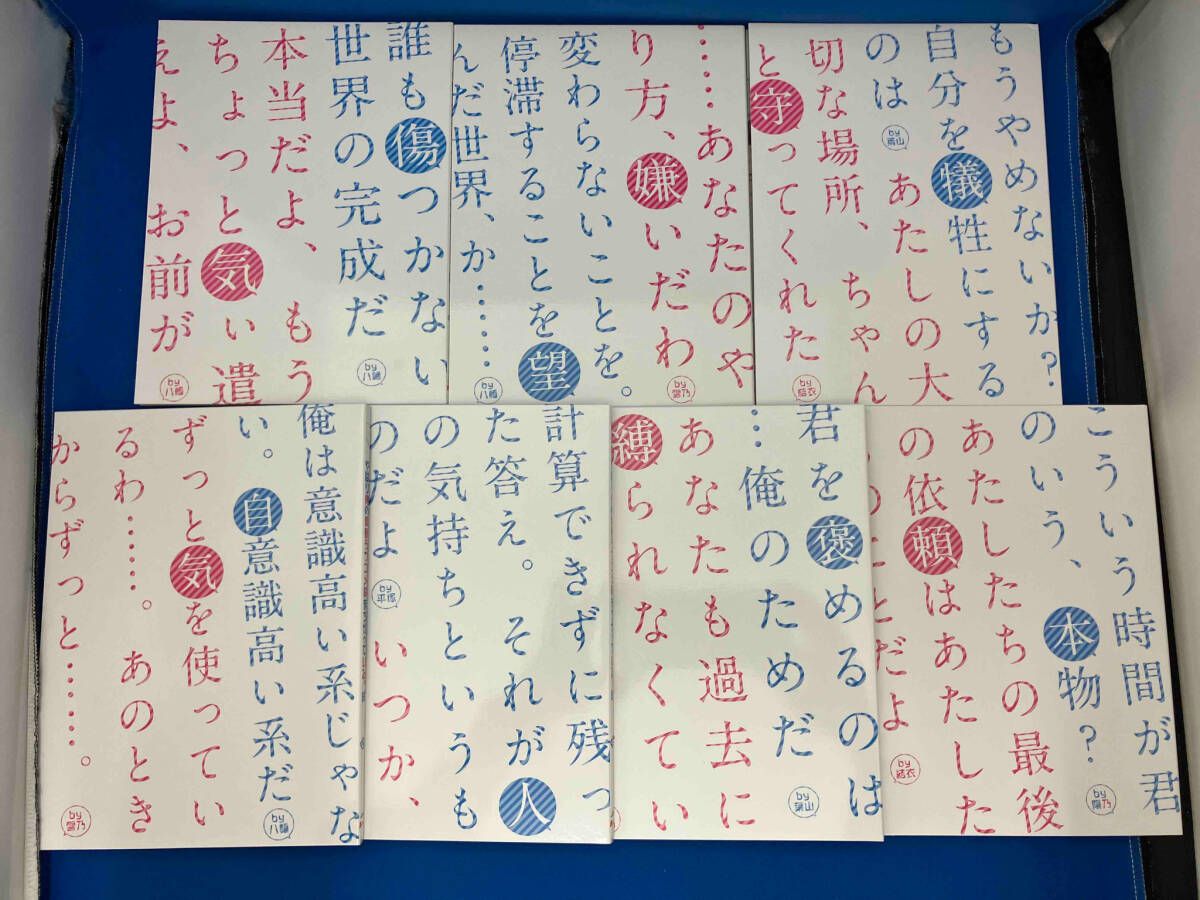 誰も傷つかない
世界の完成だ
by八幡
本当だよ、もう
ちょっと気い遣
えよ、お前が
by八幡
……あなたのや
り方、嫌いだわ
by雪乃
変わらないことを。
停滞することを望
んだ世界、か……
by八幡
もうやめないか?
自分を犠牲にする
のは by葉山 あたしの大
切な場所、ちゃん
と守ってくれた
by結衣
俺は意識高い系じゃな
い。自意識高い系だ
by八幡
ずっと気を使ってい
るわ……。あのとき
からずっと……。
by雪乃
計算できずに残っ
た答え。それが人
の気持ちというも
のだよ by平塚 いつか、
君を褒めるのは
…俺のためだ
by葉山
あなたも過去に
縛られなくてい
こういう時間が君
のいう、本物?
by陽乃
あたしたちの最後
の依頼はあたした
のことだよ
by結衣